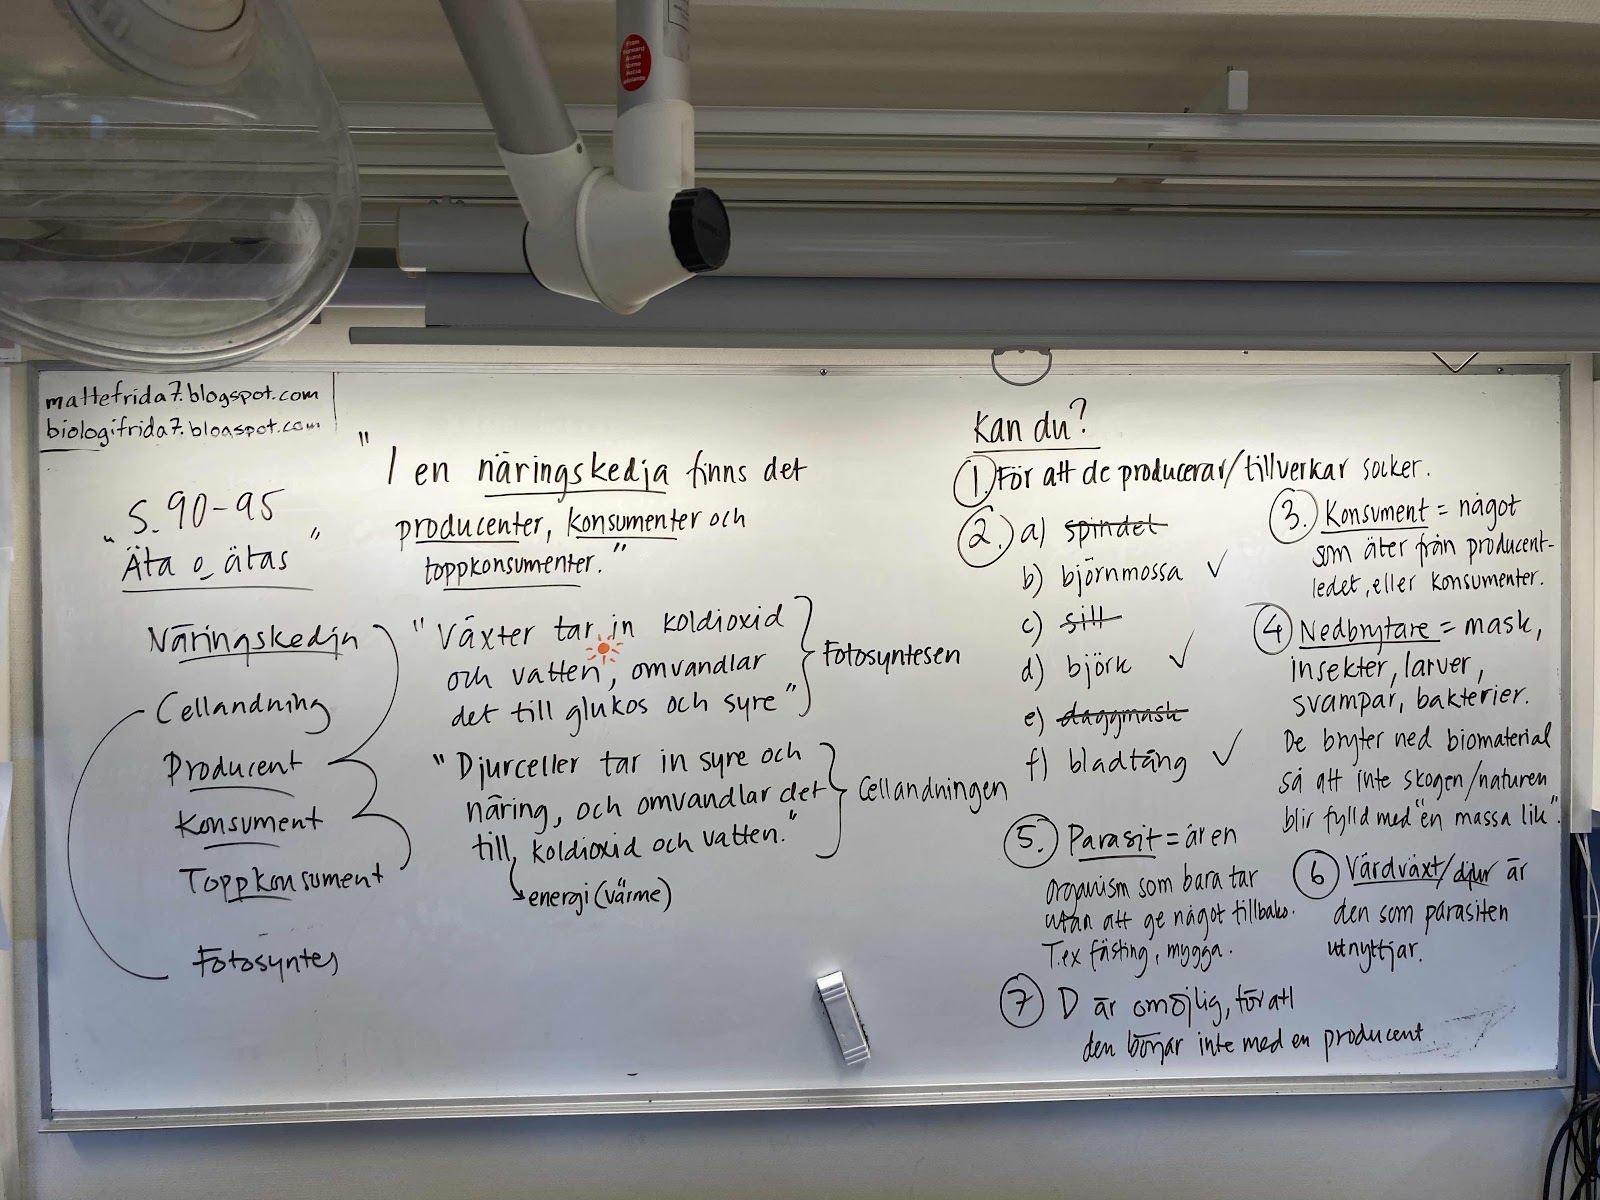 mattefrida7.blogspot.com
biologifrida7.blogspot.com
S. 90-95
"Äta o ätas"
Näringskedja
Cellandning
Producent
Konsument
Toppkonsument
Fotosyntes
"I en näringskedja finns det
producenter, konsumenter och
toppkonsumenter."
"Växter tar in koldioxid
och vatten, omvandlar
det till glukos och syre"
Fotosyntesen
"Djurceller tar in syre och
näring, och omvandlar det
till, koldioxid och vatten."
energi (värme)
Cellandningen
Kan du?
1. För att de producerar/tillverkar socker.
2. a) spindel
b) björnmossa ✓
c) sill
d) björk ✓
e) daggmask
f) bladtång ✓
3. Konsument = något
som äter från producent-
ledet, eller konsumenter.
4 Nedbrytare = mask,
insekter, larver,
svampar, bakterier.
De bryter ned biomaterial
så att inte skogen/naturen
blir fylld med "en massa lik".
5. Parasit = är en
organism som bara tar
utan att ge något tillbaka.
T.ex fästing, mygga.
6 Värdväxt/djur är
den som parasiten
utnyttjar.
7 D är omöjlig, för att
den börjar inte med en producent